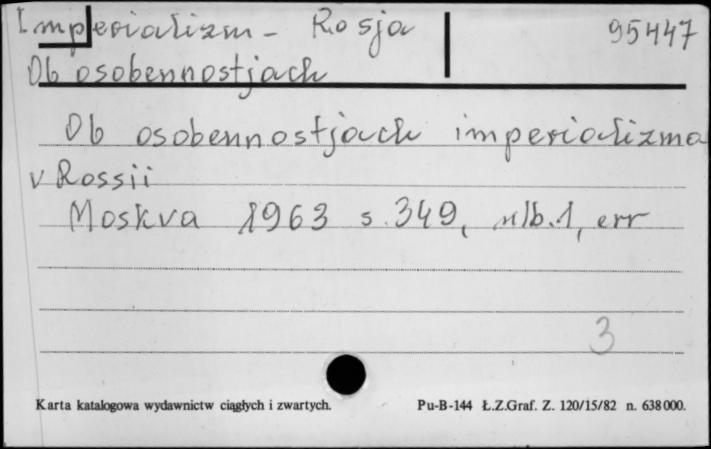 Imperializm - Rosja 95447
Ob osobennostjach
Ob osobennostjach imperializma
v Rossii
Moskva 1963 s. 349, nlb. 1, err
3
Karta katalogowa wydawnictw ciągłych i zwartych. Pu-B-144 Ł.Z.Graf. Z. 120/15/82 n. 638000.